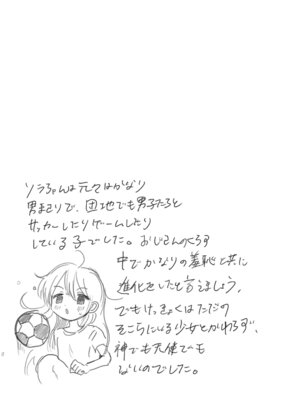 ソラちゃんは元々はかなり
男まさりで、団地でも男子たちと
サッカーしたりゲームしたり
している子でした。おじさんとくらす
中でかなりの羞恥と共に
進化をしたと言えましょう。
でもけっきょくはただの
そこらにいる少女とかわらず、
神でも天使でも
ないのでした。